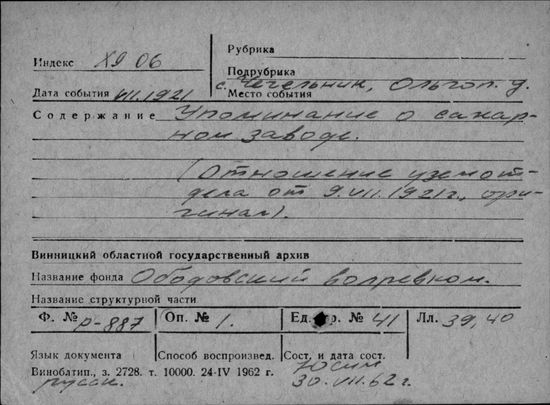 Рубрика
Индекс XI 06
Подрубрика
с. Чечельник, Ольгоп. у.
Дата события VII.1921 Место события
Содержание Упоминание о сахар-
ном заводе.
(Отношение уземот-
дела от 9.VII.1921г., ори-
гинал).
Винницкий областной государственный архив
Название фонда Ободовский волревком.
Название структурной части
Ф. № р-887 Оп. № 1. Ед. хр. № 41 Лл. 39, 40
Язык документа Способ воспроизвед. Сост. и дата сост.
Виноблтип., з. 2728. т. 10000. 24-IV 1962 г.
русск. 30.VII.62 г.